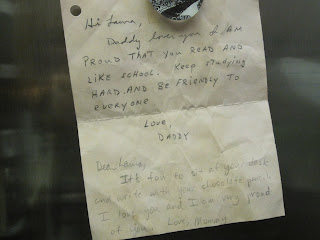 Hi Lanna,
Daddy loves you & I AM
PROUD THAT YOU READ AND
LIKE SCHOOL. KEEP STUDYING
HARD AND BE FRIENDLY TO
EVERYONE
LOVE,
DADDY
Dear Lanna,
It's fun to sit at your desk
and write with your chocolate pencil.
I love you and I am very proud
of you. Love, Mommy